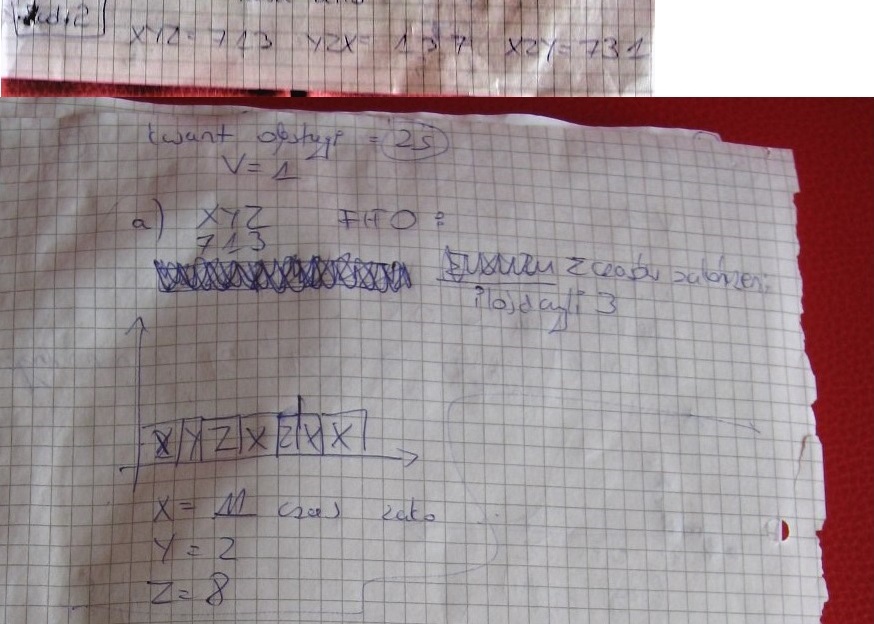 XYZ = 713 YZX = 137 XZY = 731
kwant obsługi = 2s
V = 1
a) XYZ FIFO :
713
z czasów zakończeń
ilość czyli 3
X Y Z X Z X X
X = 11 czas zako
Y = 2
Z = 8